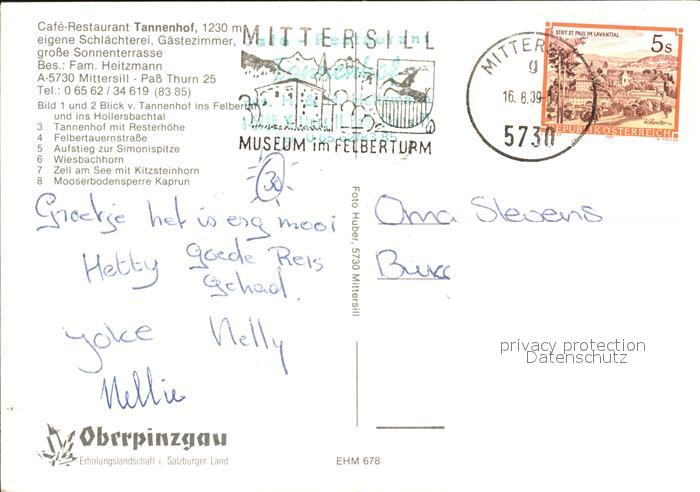 Café-Restaurant Tannenhof, 1230 m
eigene Schlächterei, Gästezimmer,
große Sonnenterrasse
Bes.: Fam. Heitzmann
A-5730 Mittersill - Paß Thurn 25
Tel.: 0 65 62 / 34 619 (83 85)
Bild 1 und 2 Blick v. Tannenhof ins Felbertal
und ins Hollersbachtal
3 Tannenhof mit Resterhöhe
4 Felbertauernstraße
5 Aufstieg zur Simonispitze
6 Wiesbachhorn
7 Zell am See mit Kitzsteinhorn
8 Mooserbodensperre Kaprun
MITTERSILL
Café - Restaurant
Tannenhof
MUSEUM im FELBERTURM
MITTERSILL
g
16. 8. 89
5730
STIFT ST. PAUL IM LAVANTTAL
5 S
REPUBLIK ÖSTERREICH
30
Groetje het is erg mooi
Hetty goede Reis
gehad.
Joke Nelly
Nellie
Oma Stevens
Foto Huber, 5730 Mittersill
privacy protection
Datenschutz
Oberpinzgau
Erholungslandschaft i. Salzburger Land
EHM 678